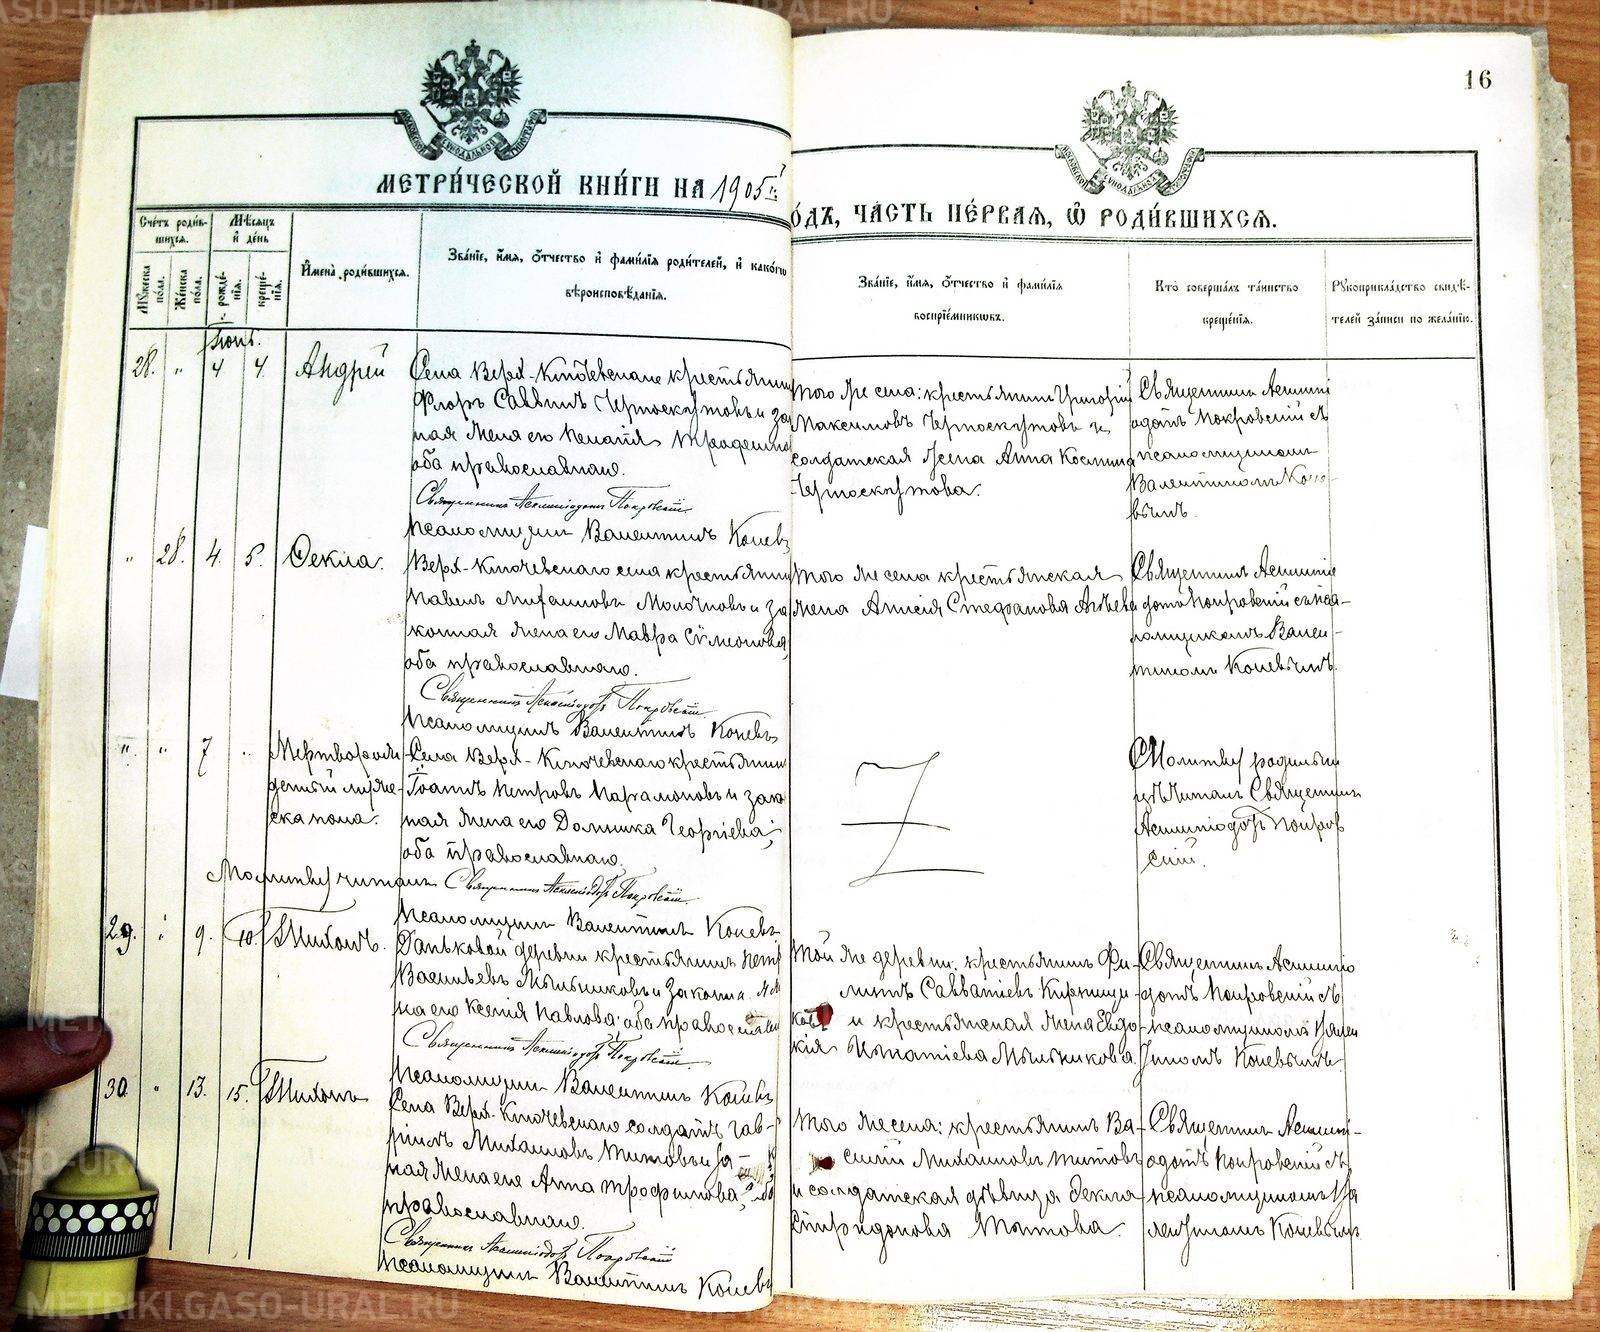 METRIKI.GASO-URAL.RU
16
МЕТРИЧЕСКОЙ КНИГИ НА 1905й
ОДЪ, ЧАСТЬ ПЕРВАЯ, Ѽ РОДИВШИХСЯ.
Счетъ родившихся.
Мѣсяцъ и день
Мужеска пола.
Женска пола.
рожденія.
крещенія.
Имена родившихся.
Званіе, имя, отчество и фамилія родителей, и какого
вѣроисповѣданія.
Званіе, имя, отчество и фамилія
воспріемниковъ.
Кто совершалъ таинство
крещенія.
Рукоприкладство свидѣ-
телей записи по желанію.
28. " 4 4. Андрей
Села Верх-Ключевскаго крестьянинъ
Флоръ Саввинъ Черноскутовъ и за
ная жена его Пелагія
оба православнаго.
Священникъ Асклипіодотъ Покровскій
Псаломщикъ Валентинъ Коневъ
того же села: крестьянинъ Григорій
Максимовъ Черноскутовъ и
солдатская жена Анна Космина
Черноскутова.
Священникъ Асклипі
одотъ Покровскій съ
псаломщикомъ
Валентиномъ Коне-
вымъ.
" 28. 4. 5. Ѳекла.
Верх-Ключевскаго села крестьянинъ
Павелъ Михаиловъ Молочковъ и за
конная жена его Мавра Сѵмеонова,
оба православнаго.
Священникъ Асклипіодотъ Покровскій
Псаломщикъ Валентинъ Коневъ
того же села крестьянская
жена Анисія Стефанова
Священникъ Асклипіо
дотъ Покровскій съ пса-
ломщикомъ Вален-
тиномъ Коневымъ.
" " 7 " Мертворож
денный муже-
ска пола.
Села Верх-Ключевскаго крестьянинъ
Іоаннъ Петровъ Парамоновъ и закон
ная жена его Домника Георгіева,
оба православнаго.
Молитву читалъ Священникъ Асклипіодотъ Покровскій
Псаломщикъ Валентинъ Коневъ
Молитву родильни
цѣ читалъ Священникъ
Асклипіодотъ Покров
скій.
29. " 9. 10. Тихонъ.
деревни крестьянинъ Петръ
Васильевъ Мыльниковъ и законна
на его Ксенія Павлова: оба православна
Священникъ Асклипіодотъ Покровскій
Псаломщикъ Валентинъ Коневъ
той же деревни: крестьянинъ Фи-
липпъ Савватіевъ
ковъ и крестьянская жена Евдо-
кія Игнатіева Мыльникова.
Священникъ Асклипіо
дотъ Покровскій съ
псаломщикомъ Вален
тиномъ Коневымъ.
30. " 13. 15. Тихонъ
Села Верх-Ключевскаго солдатъ Гав-
ріилъ Михаиловъ Титовъ и за-
ная жена его Анна Трофимова, оба
православнаго.
Священникъ Асклипіодотъ Покровскій
Псаломщикъ Валентинъ Коневъ
того же села: крестьянинъ Ва-
силій Михаиловъ Титовъ
и солдатская дѣвица Ѳекла
Спиридонова Титова.
Священникъ Асклипі-
одотъ Покровскій съ
псаломщикомъ Ва
лентиномъ Коневымъ
METRIKI.GASO-URAL.RU